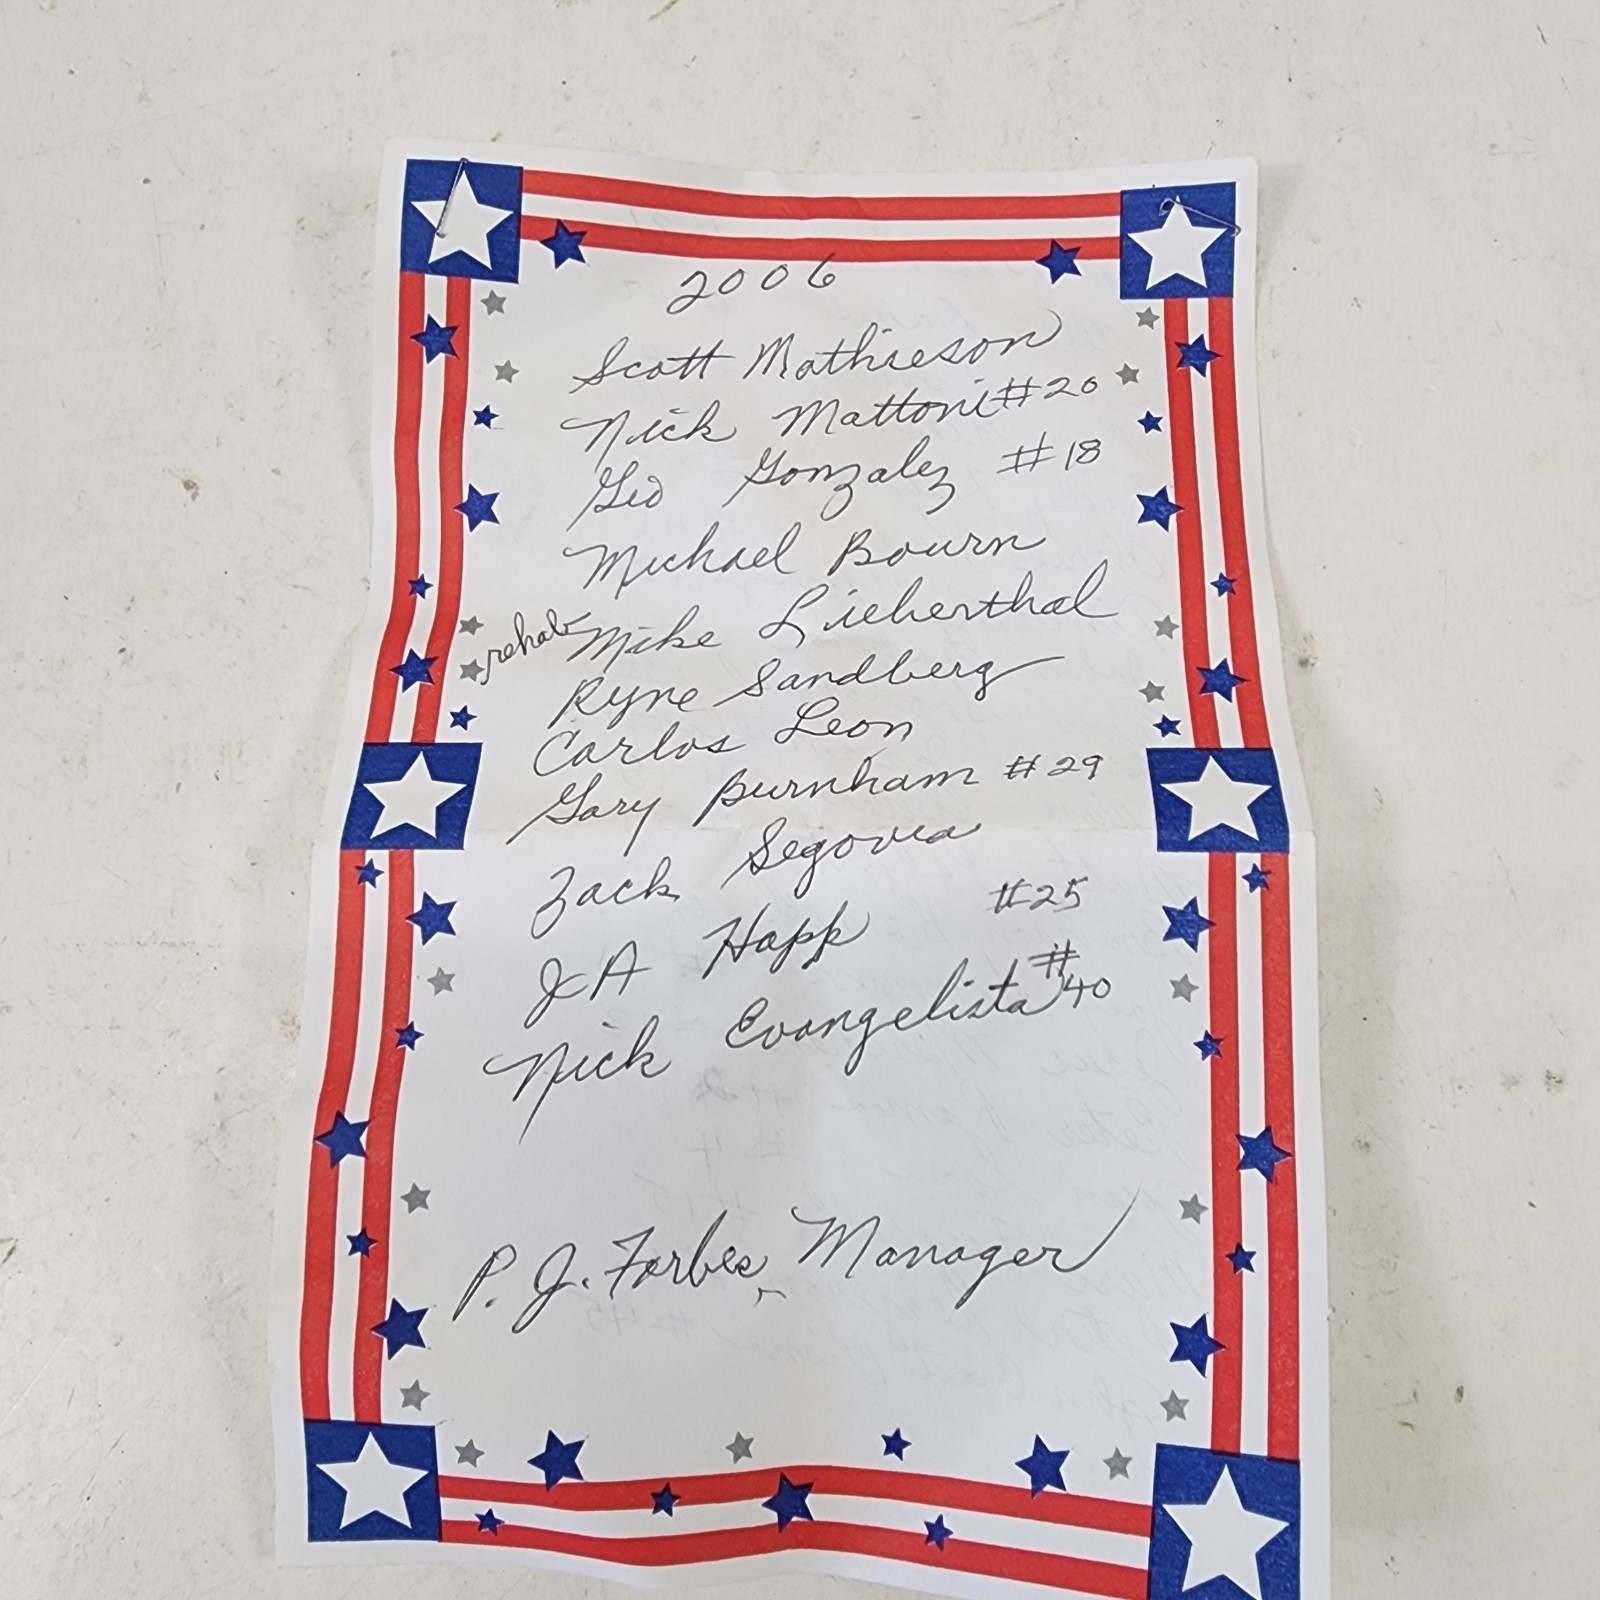 2006
Scott Mathieson
Nick Mattoni #20
Gio Gonzalez #18
Michael Bourn
rehab Mike Lieberthal
Ryne Sandberg
Carlos Leon
Gary Burnham #29
Zack Segovia
JA Happ #25
Nick Evangelista #40
P. J. Forbes, Manager